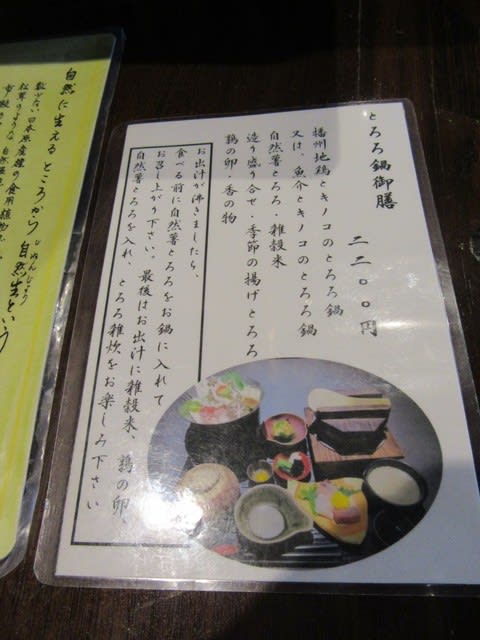 とろろ鍋御膳
二二〇〇円
播州地鶏とキノコのとろろ鍋
又は、魚介とキノコのとろろ鍋
自然薯とろろ・雑穀米
造り盛り合せ・季節の揚げとろろ
鶉の卵・香の物
お出汁が沸きましたら、
食べる前に自然薯とろろをお鍋に入れて
お召し上がり下さい。最後はお出汁に雑穀米、鶉の卵、
自然薯とろろを入れ、とろろ雑炊をお楽しみ下さい
自然に生えるところから自然生という
じねんじょう
数少ない日本原産種の食用植物
松茸のような